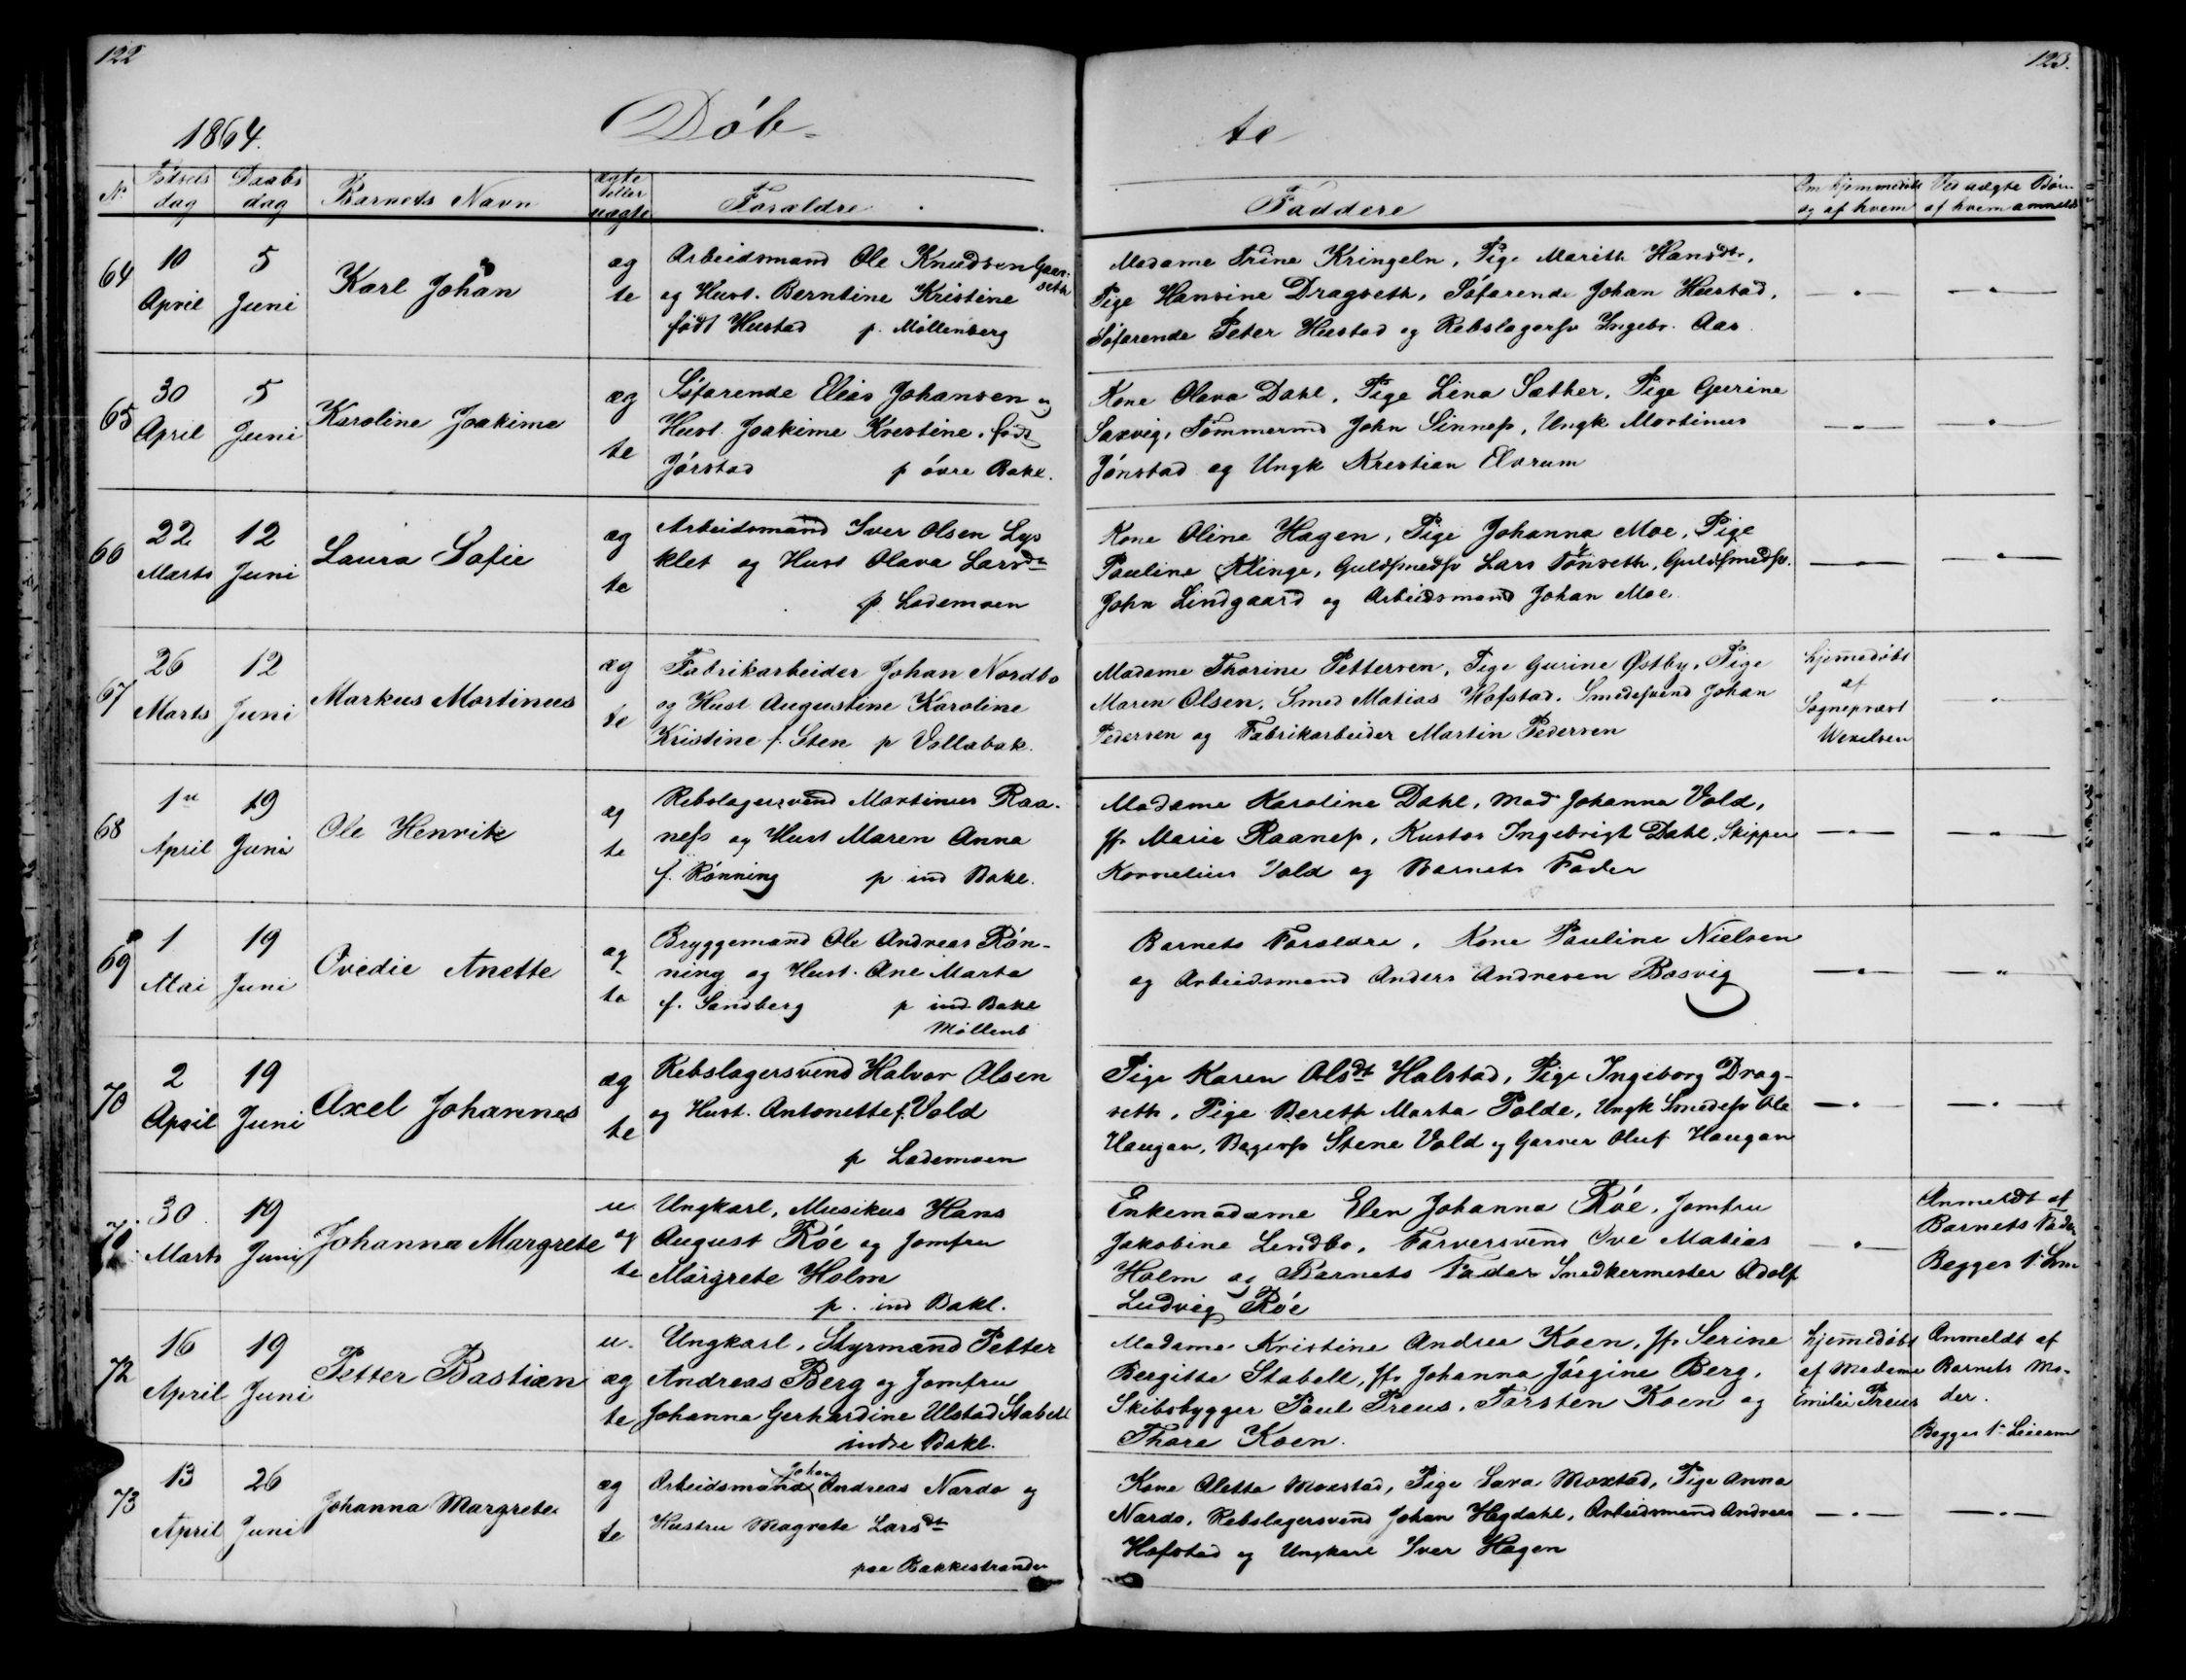 122
123.
1864.
Döb-
te
N.
Födsels
dag
Daabs
dag
Barnets Navn
ægte
eller
uægte
Forældre
Faddere
Om hjemmedöbt
og af hvem
Ved uægte Börn
af hvem anmeldt
64
10
April
5
Juni
Karl Johan
æg
te
Arbeidsmand Ole Knudsen
og Hust. Berntine Kristine
födt Hustad p. Möllenberg
Madame Trine Kringeln, Pige Marith Hansdtr,
Pige Hansine Dragseth, Söfarende Johan Hustad,
Söfarende Peter Hustad og Rebslagersv Ingebr. Aas
65
30
April
5
Juni
Karoline Joakime
æg
te
Söfarende Elias Johansen og
Hust. Joakime Krestine, födt
Jörstad p övre Bakl.
Kone Olava Dahl, Pige Lina Sæther, Pige Gurine
Saxvig, Tömmermd John Sinnes, Ungk Mortinus
Jönstad og Ungk Krestian Elvrum
66
22
Marts
12
Juni
Laura Sofie
æg
te
Arbeidsmand Iver Olsen Lys
klet og Hust Olava Larsdtr
p Lademoen
Kone Oline Hagen, Pige Johanna Moe, Pige
Pauline Klinge, Guldsmedsv Lars Tönseth, Guldsmedsv.
John Lindgaard og Arbeidsmand Johan Moe
67
26
Marts
12
Juni
Markus Martinus
æg
te
Fabrikarbeider Johan Nordbo
og Hust Augustine Karoline
Kristine f. Sten p Vollabak.
Madame Thorine Pettersen, Pige Gurine Østby, Pige
Maren Olsen, Smed Matias Hofstad, Smedesvend Johan
Pedersen og Fabrikarbeider Martin Pedersen
hjemedöbt
af
Sognepræst
Wexelsen
68
1
April
19
Juni
Ole Henrik
æg
te
Rebslagersvend Martinus Raa-
ness og Hust Maren Anna
f. Rönning p ind Bakl.
Madame Karoline Dahl, Mad Johanna Vold,
Jfr Marie Raaness, Kustos Ingebrigt Dahl, Skipper
Kornelius Vold og Barnets Fader
69
1
Mai
19
Juni
Ovedie Anette
æg
te
Bryggemand Ole Andreas Rön-
ning og Hust. Ane Marta
f. Sandberg p ind Bakl
Möllenb
Barnets Forældre, Kone Pauline Nielsen
og Arbeidsmand Anders Andresen Bosvig
70
2
April
19
Juni
Axel Johannes
æg
te
Rebslagersvend Halvor Olsen
og Hust. Antonette f. Vold
p Lademoen
Pige Karen Olsdtr Halstad, Pige Ingeborg Drag-
seth, Pige Bereth Marta Polde, Ungk Smedesv Ole
Haugan, Bagersv Stene Vold og Garver Oluf Haugan
30
Marts
19
Juni
Johanna Margrete
u
æg
te
Ungkarl, Musikus Hans
August Röe og Jomfru
Margrete Holm
p. ind Bakl.
Enkemadame Elen Johanna Röe, Jomfru
Jakobine Lendbo, Farversvend Ove Matias
Holm og Barnets Fader Snedkermester Adolf
Ludvig Röe
Anmeldt af
Barnets Fader
Begges 1. Lm
72
16
April
19
Juni
Petter Bastian
u.
æg
te
Ungkarl, Styrmand Petter
Andreas Berg og Jomfru
Johanna Gerhardine Ulstad Stabell
indre Bakl.
Madame Kristine Andrea Koen, Jfr Serine
Bergitte Stabell, Jfr Johanna Jörgine Berg,
Skibsbygger Paul Preus, Torsten Koen og
Thore Koen.
hjemedöbt
af Madame
Emilie Preus
Anmeldt af
Barnets Mo-
der.
Begges 1. Leierm
73
13
April
26
Juni
Johanna Margrete
æg
te
Johan
Arbeidsmand Andreas Nardo og
Hustru Magrete Larsdtr
paa Bakkestranden
Kone Aletta Moxstad, Pige Sara Moxtad, Pige Anna
Nardo, Rebslagersvend Johan Hegdahl, Arbeidsmand Andreas
Hofstad og Ungkarl Iver Hagen